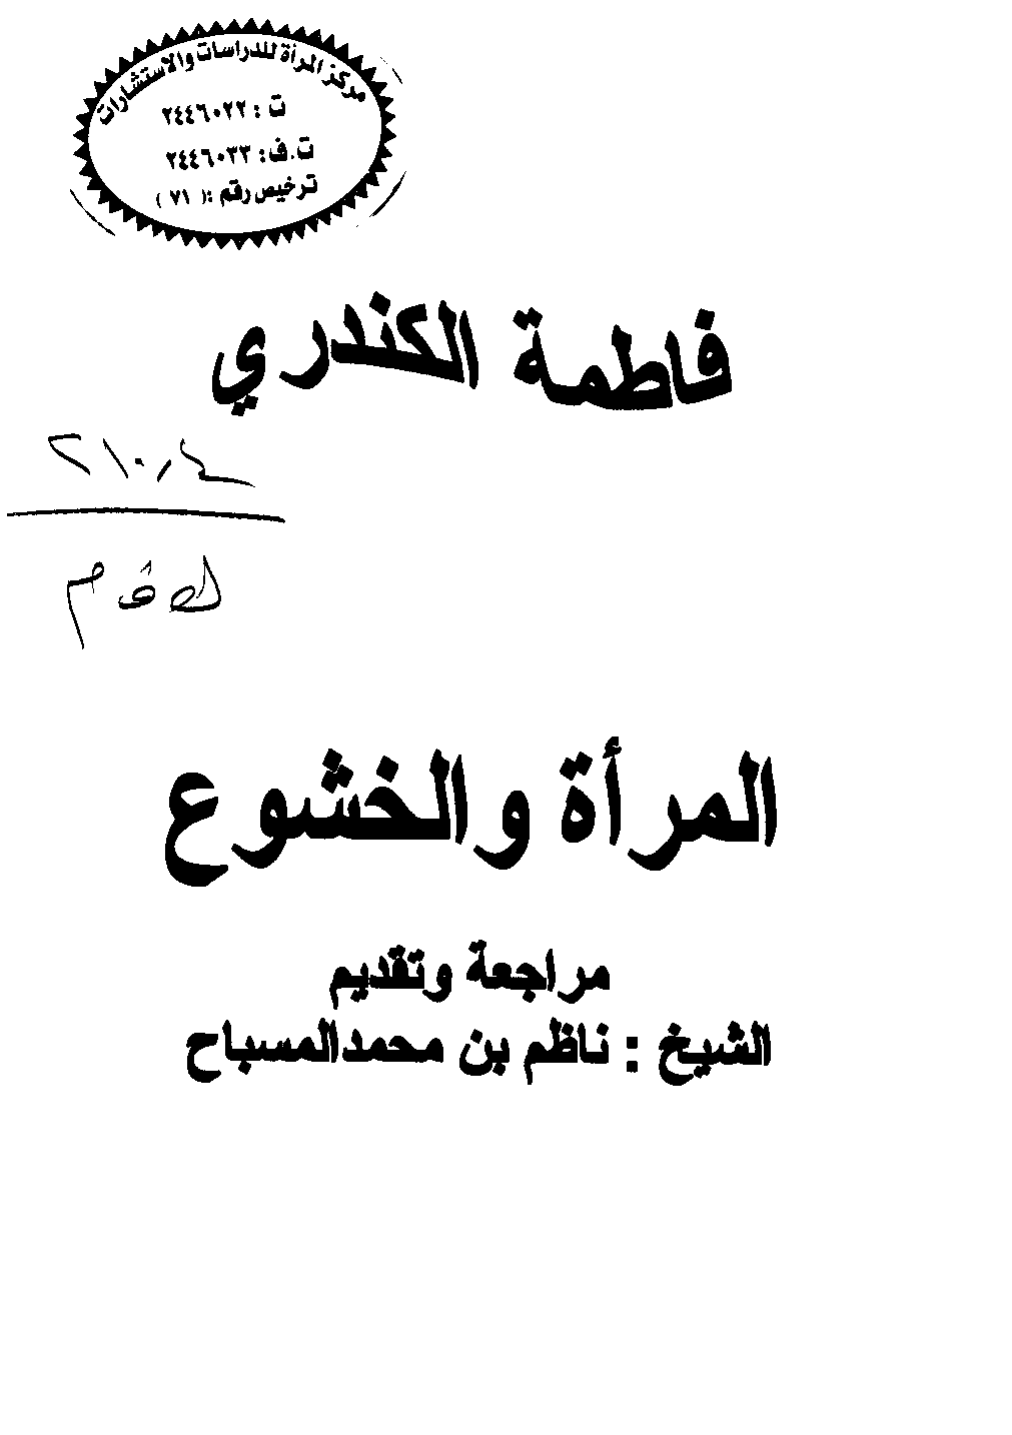 مركز المرأة للدراسات والاستشارات
ت : ٢٤٤٦٠٢٢
ت.ف: ٢٤٤٦٠٣٣
ترخيص رقم :( ٧١ )
فاطمة الكندري
٢١٠٫٤
المرأة والخشوع
مراجعة وتقديم
الشيخ : ناظم بن محمدالمسباح